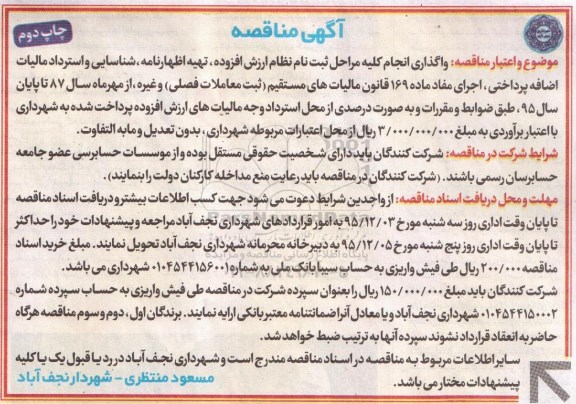 آگهی مناقصه
چاپ دوم
موضوع و اعتبار مناقصه: واگذاری انجام کلیه مراحل ثبت نام نظام ارزش افزوده، تهیه اظهارنامه، شناسایی و استرداد مالیات
اضافه پرداختی، اجرای مفاد ماده ۱۶۹ قانون مالیات های مستقیم (ثبت معاملات فصلی) وغیره، از مهرماه سال ۸۷ تا پایان
سال ۹۵، طبق ضوابط و مقررات و به صورت درصدی از محل استرداد وجه مالیات های ارزش افزوده پرداخت شده به شهرداری
با اعتبار برآوردی به مبلغ ۳/۰۰۰/۰۰۰/۰۰۰ ریال از محل اعتبارات مربوطه شهرداری، بدون تعدیل و مابه التفاوت.
شرایط شرکت در مناقصه: شرکت کنندگان باید دارای شخصیت حقوقی مستقل بوده و از موسسات حسابرسی عضو جامعه
حسابرسان رسمی باشند. (شرکت کنندگان در مناقصه باید رعایت منع مداخله کارکنان دولت را بنمایند).
مهلت و محل دریافت اسناد مناقصه: از واجدین شرایط دعوت می شود جهت کسب اطلاعات بیشتر و دریافت اسناد مناقصه
تا پایان وقت اداری روز سه شنبه مورخ ۹۵/۱۲/۰۳ به امور قراردادهای شهرداری نجف آباد مراجعه و پیشنهادات خود را حداکثر
تا پایان وقت اداری روز پنج شنبه مورخ ۹۵/۱۲/۰۵ به دبیرخانه محرمانه شهرداری نجف آباد تحویل نمایند. مبلغ خرید اسناد
مناقصه ۲۰۰/۰۰۰ ریال طی فیش واریزی به حساب سیبا بانک ملی به شماره ۰۱۰۴۵۴۴۱۵۶۰۰۱ شهرداری می باشد.
شرکت کنندگان باید مبلغ ۱۵۰/۰۰۰/۰۰۰ ریال را بعنوان سپرده شرکت در مناقصه طی فیش واریزی به حساب سپرده شماره
۰۱۰۴۵۴۴۱۵۰۰۰۲ شهرداری نجف آباد و یا معادل آنرا ضمانتنامه معتبر بانکی ارایه نمایند. برندگان اول، دوم و سوم مناقصه هرگاه
حاضر به انعقاد قرارداد نشوند سپرده آنها به ترتیب ضبط خواهد شد.
سایر اطلاعات مربوط به مناقصه در اسناد مناقصه مندرج است و شهرداری نجف آباد در رد یا قبول یک یا کلیه
پیشنهادات مختار می باشد.
مسعود منتظری - شهردار نجف آباد